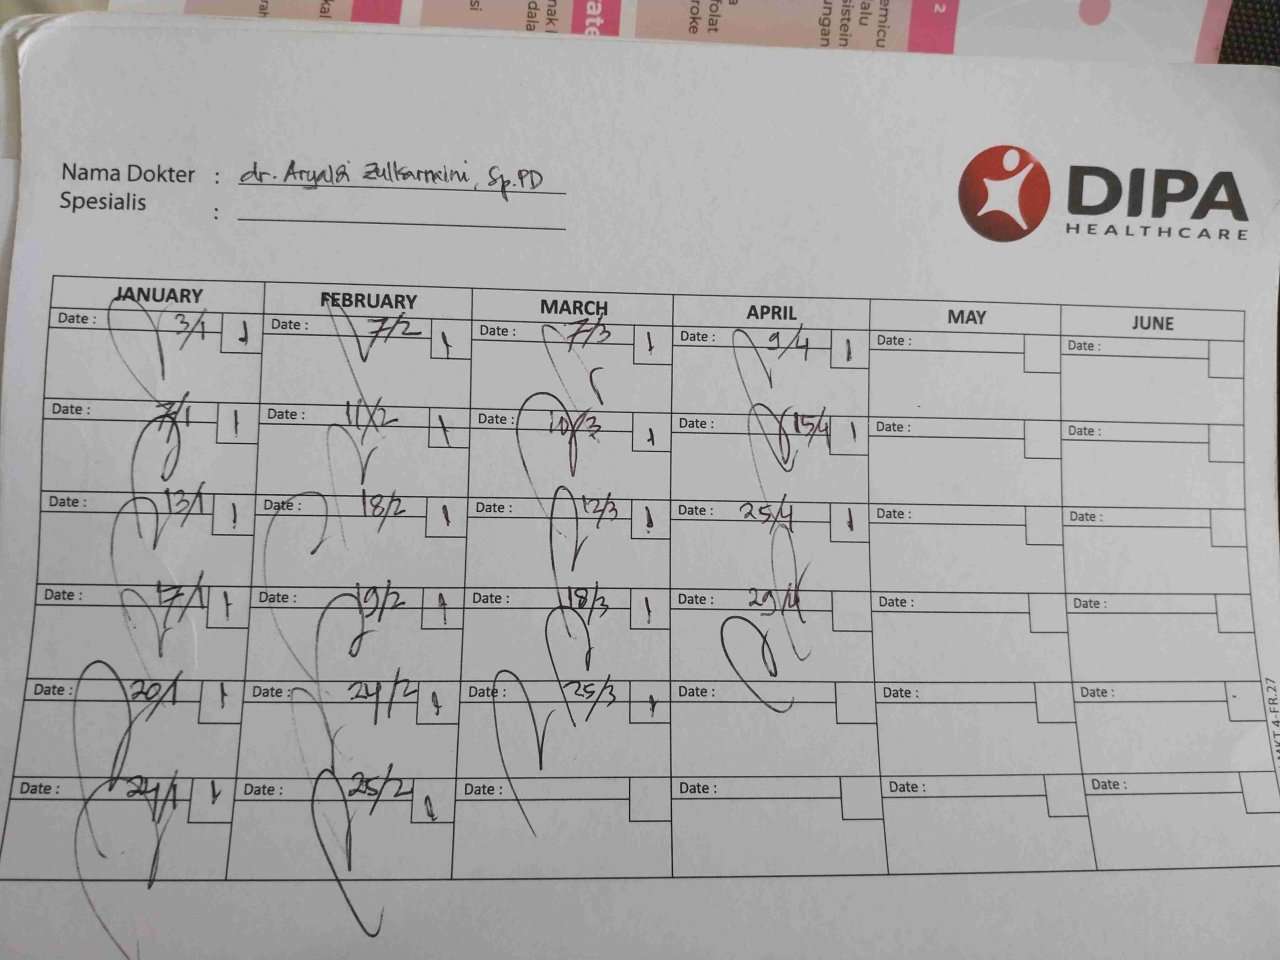 Nama Dokter : dr. Aryaldi Zulkarnaini, Sp.PD
Spesialis :
DIPA
HEALTHCARE
JANUARY FEBRUARY MARCH APRIL MAY JUNE
Date : 3/1 1 Date : 7/2 1 Date : 7/3 1 Date : 9/4 1 Date : Date :
Date : 7/1 1 Date : 11/2 1 Date : 10/3 1 Date : 15/4 1 Date : Date :
Date : 13/1 1 Date : 18/2 1 Date : 12/3 1 Date : 25/4 1 Date : Date :
Date : 17/1 1 Date : 19/2 1 Date : 18/3 1 Date : 29/4 Date : Date :
Date : 20/1 1 Date : 24/2 1 Date : 25/3 1 Date : Date : Date :
Date : 24/1 1 Date : 25/2 1 Date : Date : Date : Date :